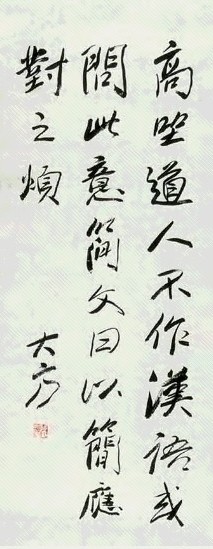 高坐道人不作漢語或
問此意簡文曰以簡應
對之煩
大亨